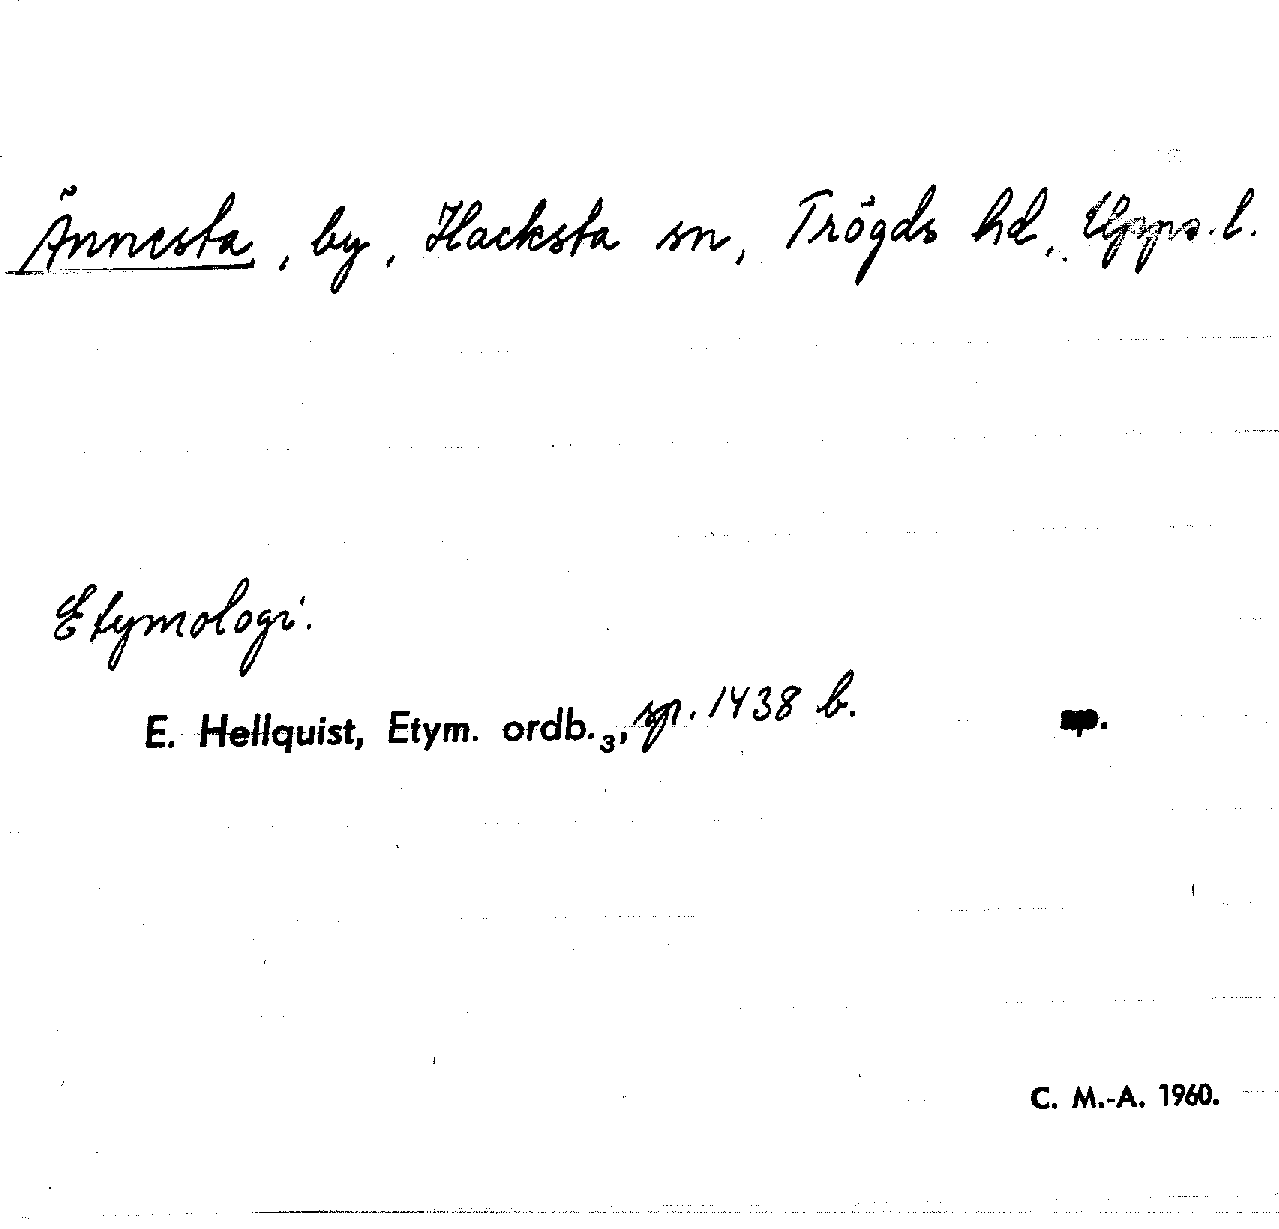 Ännesta, by, Hacksta sn, Trögds hd, Upps. l.
Etymologi.
E. Hellquist, Etym. ordb.₃, sp. 1438 b. sp.
C. M.-A. 1960.